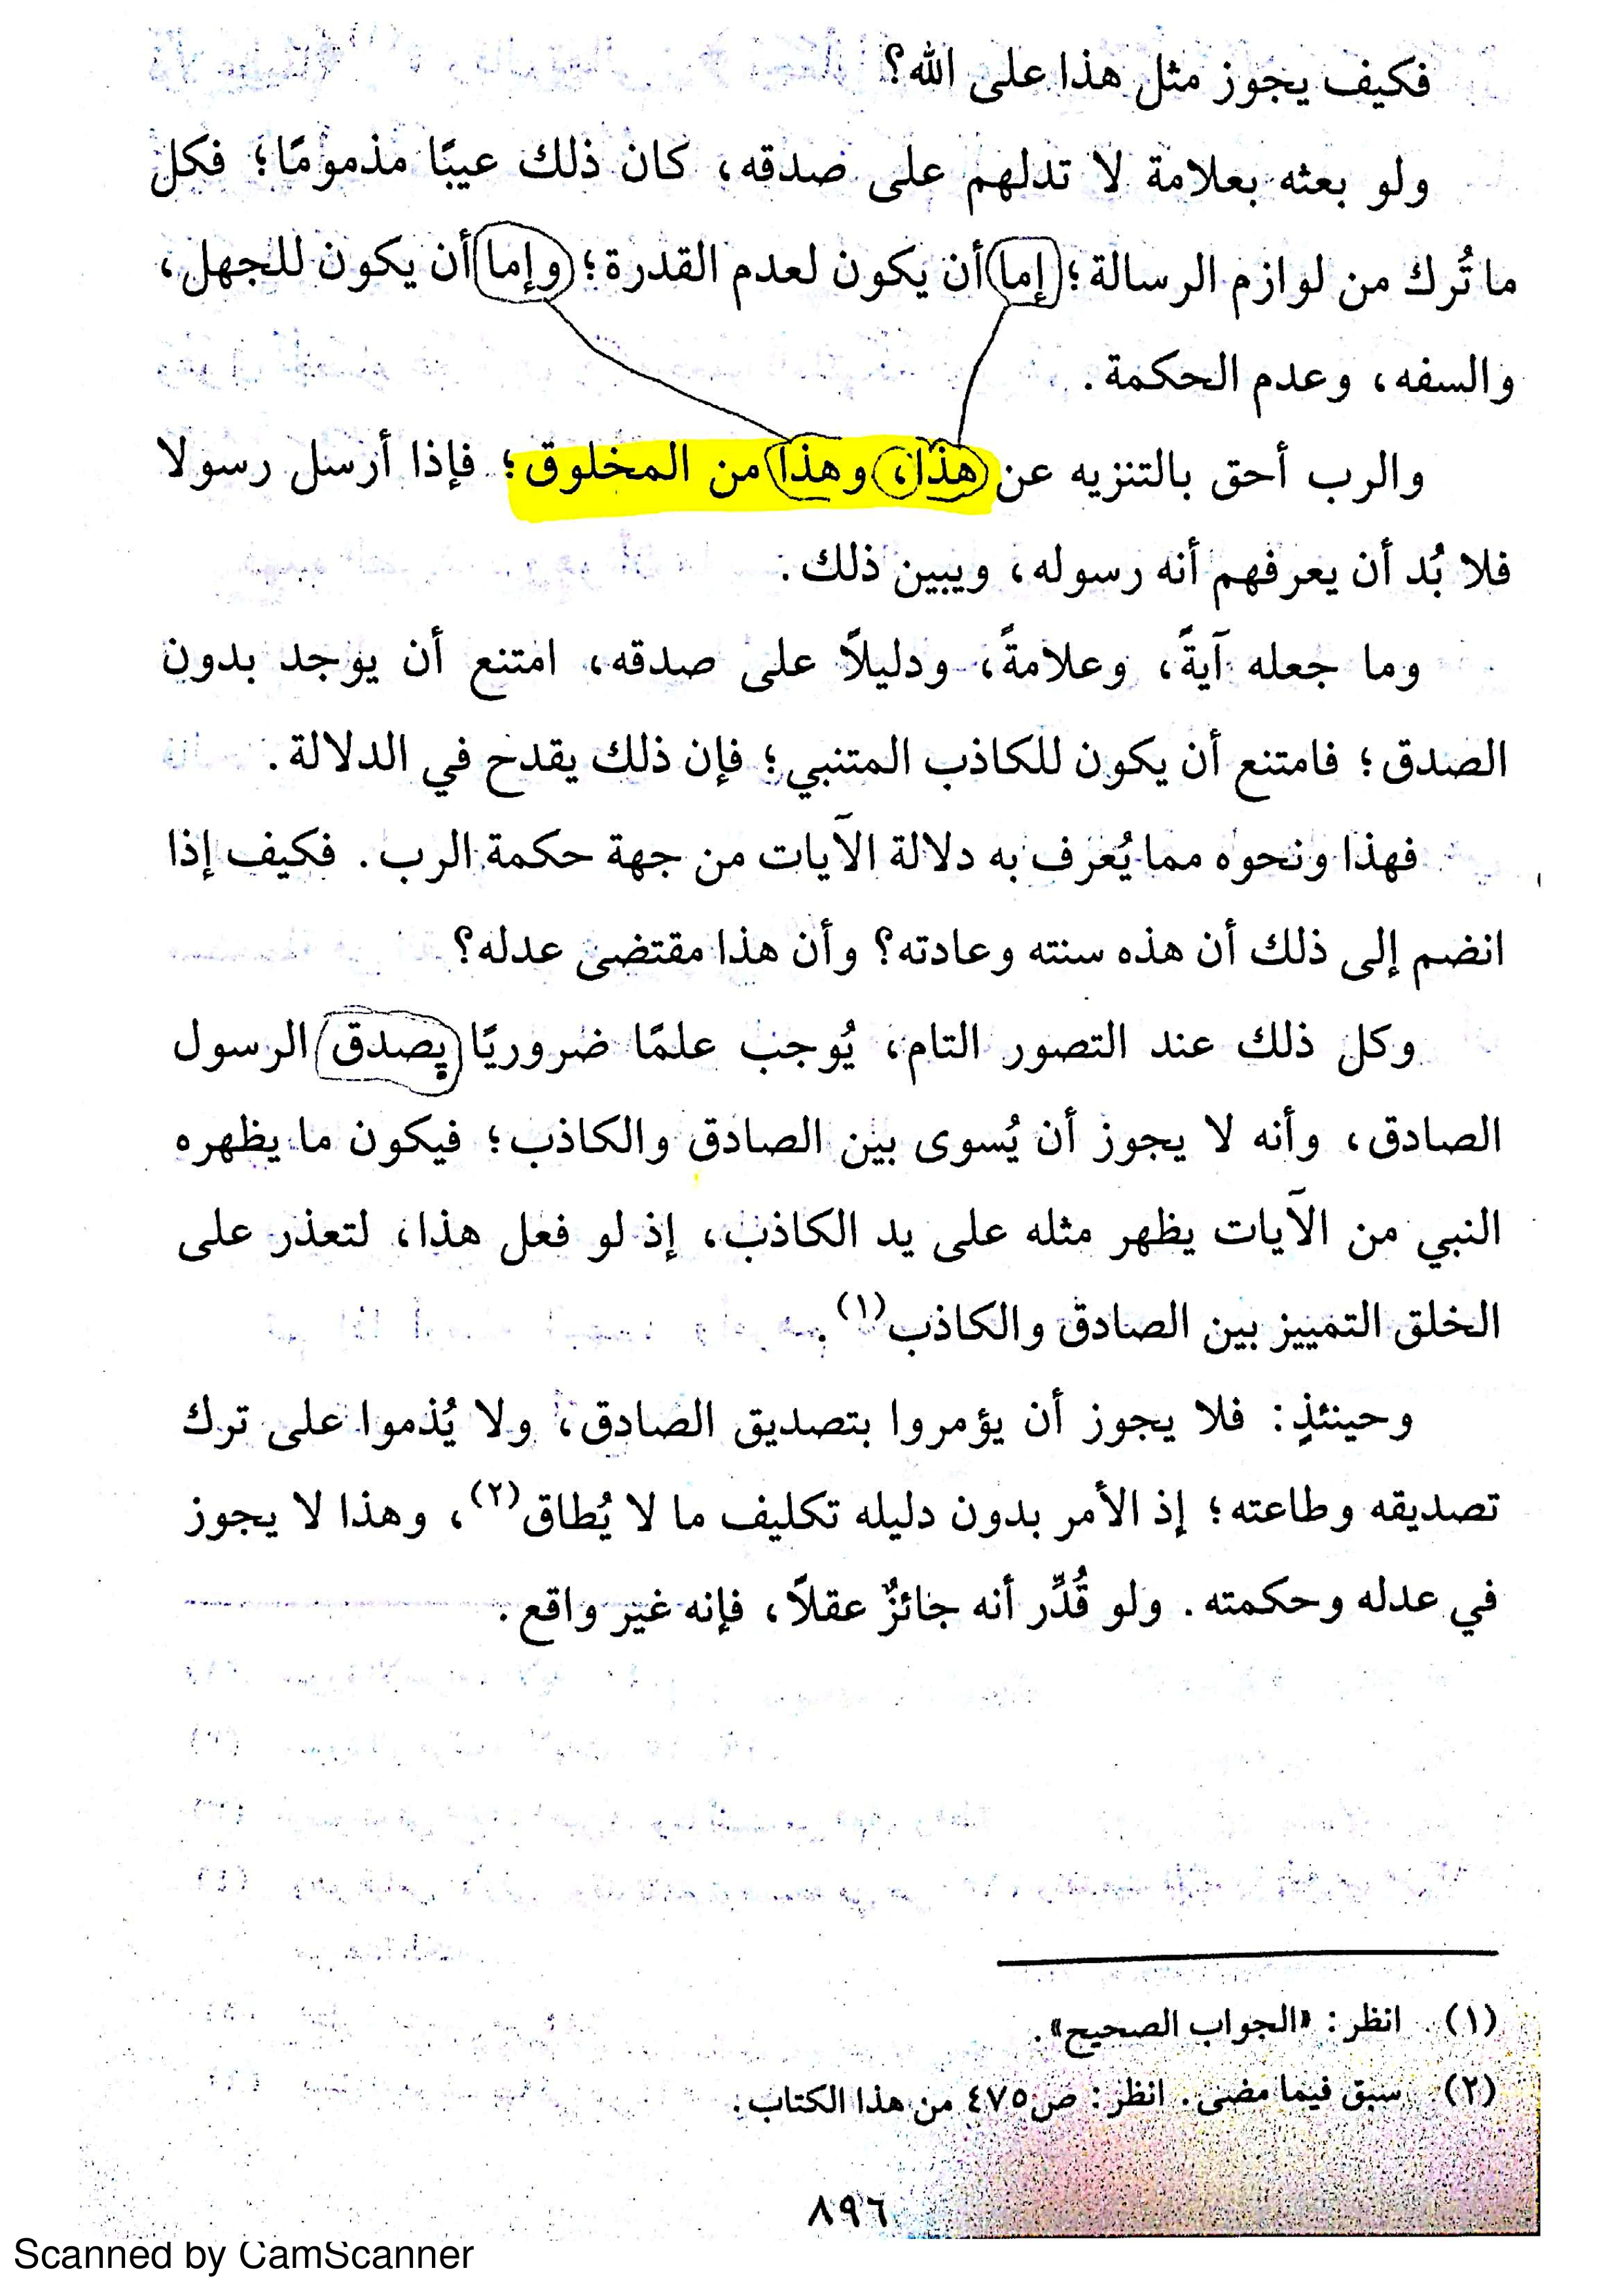 فكيف يجوز مثل هذا على الله؟
ولو بعثه بعلامة لا تدلهم على صدقه، كان ذلك عيبًا مذمومًا؛ فكل
ما تُرك من لوازم الرسالة؛ إما أن يكون لعدم القدرة؛ وإما أن يكون للجهل،
والسفه، وعدم الحكمة.
والرب أحق بالتنزيه عن هذا، وهذا من المخلوق؛ فإذا أرسل رسولا
فلا بُد أن يعرفهم أنه رسوله، ويبين ذلك.
وما جعله آيةً، وعلامةً، ودليلاً على صدقه، امتنع أن يوجد بدون
الصدق؛ فامتنع أن يكون للكاذب المتنبي؛ فإن ذلك يقدح في الدلالة.
فهذا ونحوه مما يُعرف به دلالة الآيات من جهة حكمة الرب. فكيف إذا
انضم إلى ذلك أن هذه سنته وعادته؟ وأن هذا مقتضى عدله؟
وكل ذلك عند التصور التام، يُوجب علمًا ضروريًا بصدق الرسول
الصادق، وأنه لا يجوز أن يُسوى بين الصادق والكاذب؛ فيكون ما يظهره
النبي من الآيات يظهر مثله على يد الكاذب، إذ لو فعل هذا، لتعذر على
الخلق التمييز بين الصادق والكاذب(١).
وحينئذٍ: فلا يجوز أن يؤمروا بتصديق الصادق، ولا يُذموا على ترك
تصديقه وطاعته؛ إذ الأمر بدون دليله تكليف ما لا يُطاق(٢)، وهذا لا يجوز
في عدله وحكمته. ولو قُدِّر أنه جائزٌ عقلاً، فإنه غير واقع.
(١) انظر: «الجواب الصحيح».
(٢) سبق فيما مضى. انظر: ص٤٧٥ من هذا الكتاب.
٨٩٦
Scanned by CamScanner